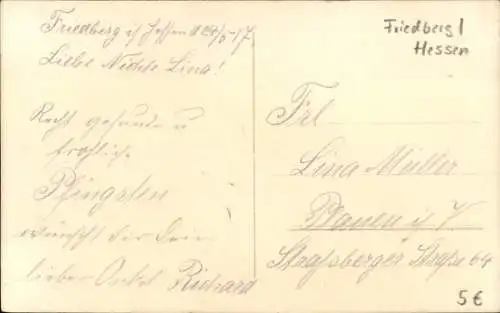 Friedberg i/ Hessen d 24/5-17.
Liebe Nichte Lina!
Recht gesunde u
fröhliche
Pfingsten
wünscht dir dein
lieber Onkel Richard
Friedberg /
Hessen
Frl
Lina Müller
Plauen i/ V
Straßberger Straße 64
5€